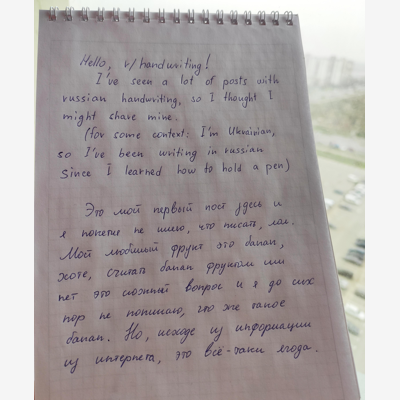 Hello, r/handwriting!
I've seen a lot of posts with
russian handwriting, so I thought I
might share mine.
(for some context: I'm Ukrainian,
so I've been writing in russian
since I learned how to hold a pen)
Это мой первый пост здесь и
я понятие не имею, что писать, лол.
Мой любимый фрукт это банан,
хотя, считать банан фруктом или
нет это сложный вопрос и я до сих
пор не понимаю, что же такое
банан. Но, исходя из информации
из интернета, это всё-таки ягода.